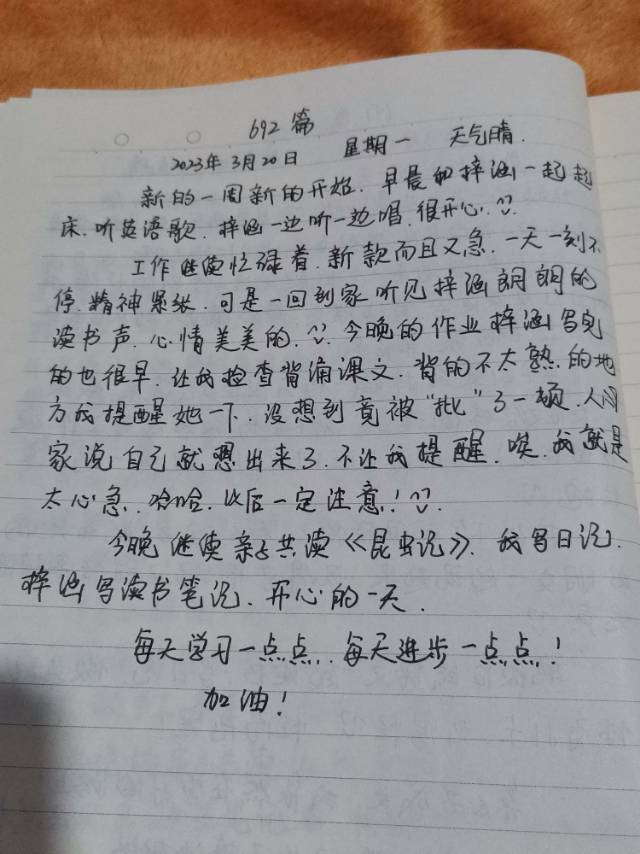 692篇
2023年3月20日 星期一 天气晴.
新的一周新的开始.早晨和梓涵一起起
床.听英语歌.梓涵一边听一边唱.很开心.
工作继续忙碌着.新款而且又急.一天一刻不
停.精神紧张.可是一回到家听见梓涵朗朗的
读书声.心情美美的.今晚的作业梓涵写完
的也很早.让我检查背诵课文.背的不太熟的地
方我提醒她一下.没想到竟被“批”了一顿.人家
家说自己就想出来了.不让我提醒.唉.我就是
太心急.哈哈.以后一定注意!
今晚继续亲子共读《昆虫记》.我写日记.
梓涵写读书笔记.开心的一天.
每天学习一点点.每天进步一点点!
加油!